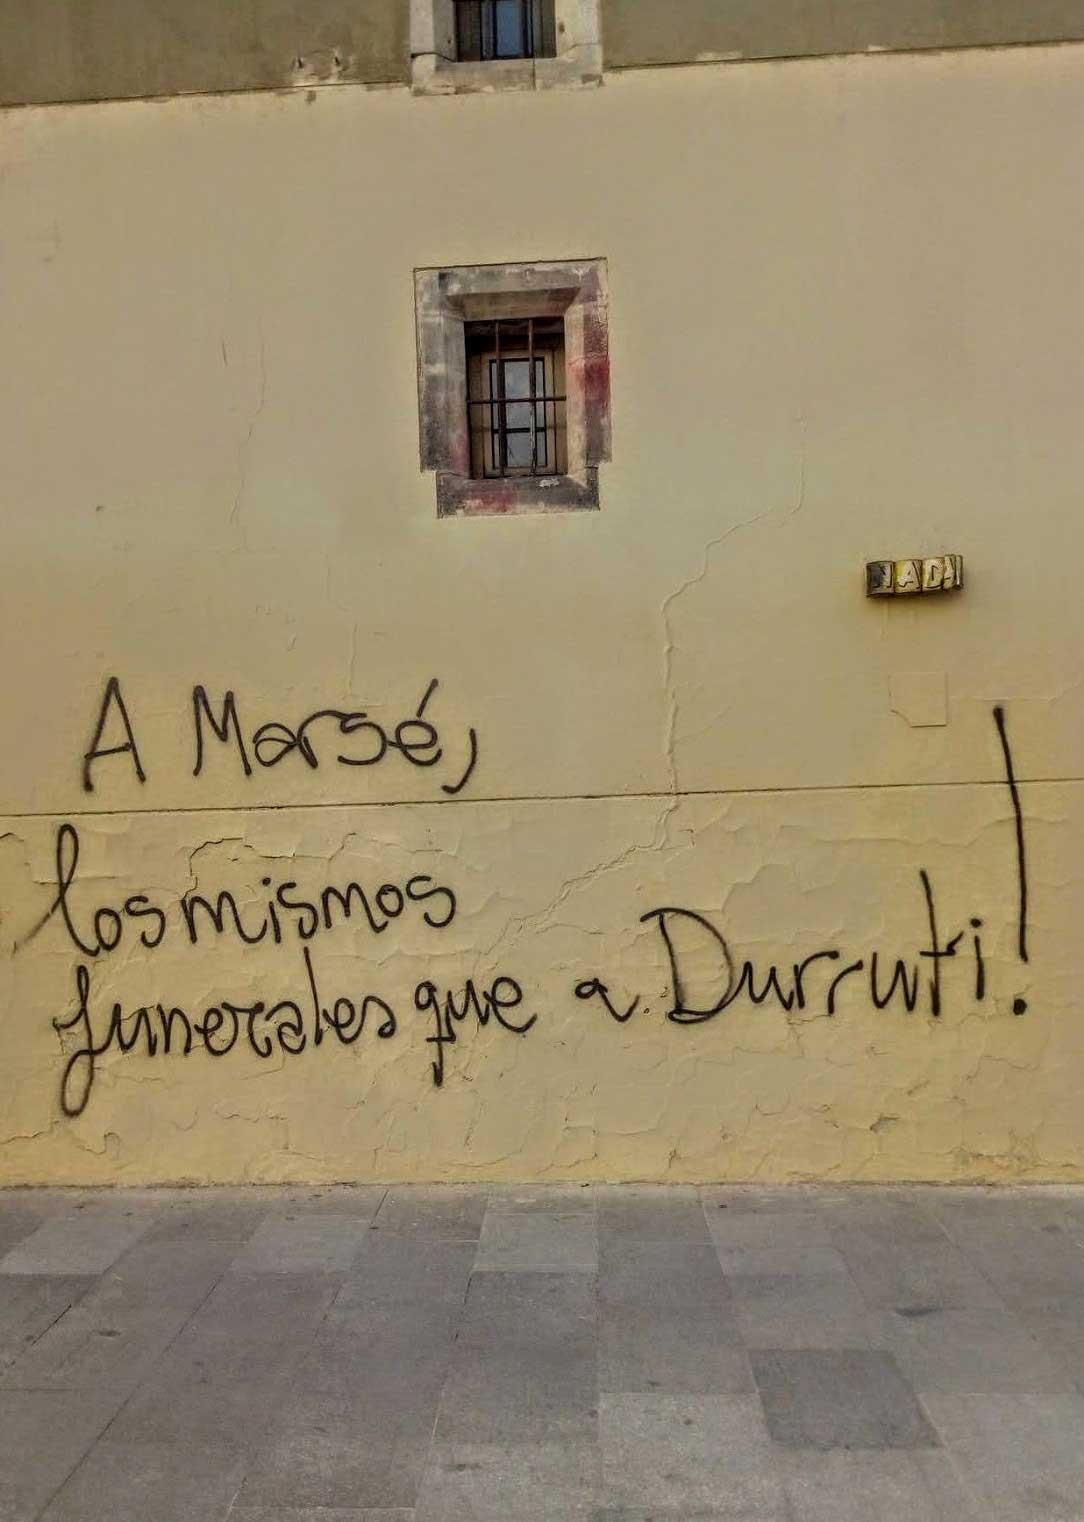 NADA
A Marsé,
los mismos
funerales que a Durruti!